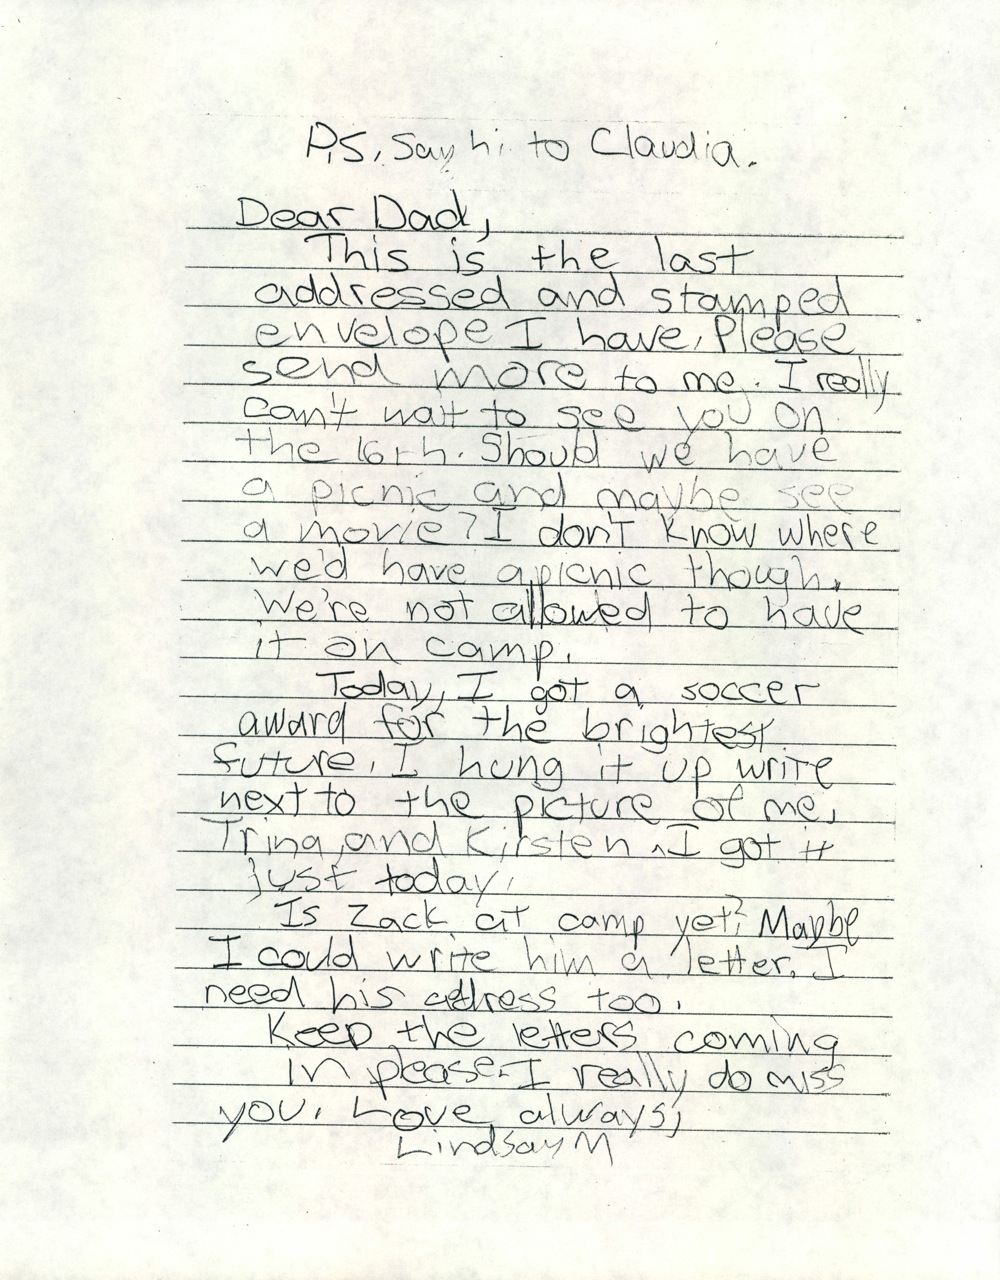 P.S. Say hi to Claudia.
Dear Dad,
This is the last
addressed and stamped
envelope I have. Please
send more to me. I really
can't wait to see you on
the 16th. Should we have
a picnic and maybe see
a movie? I don't know where
we'd have a picnic though.
We're not allowed to have
it on camp.
Today, I got a soccer
award for the brightest
future. I hung it up write
next to the picture of me,
Trina, and Kirsten. I got it
just today.
Is Zack at camp yet? Maybe
I could write him a letter. I
need his adress too.
Keep the letters coming
in please. I really do miss
you. Love always,
Lindsay M